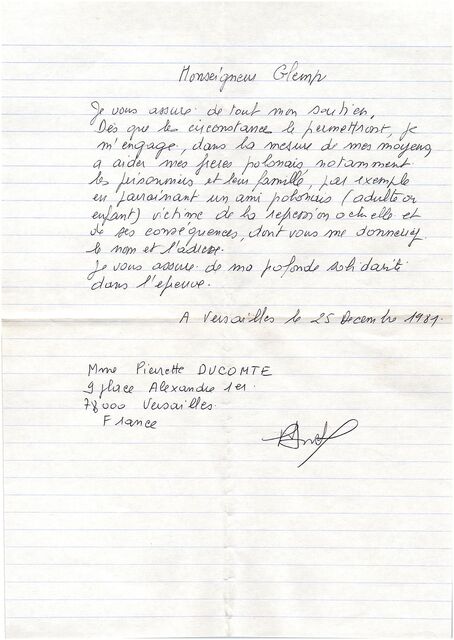 Monseigneur Glemp
Je vous assure de tout mon soutien.
Dès que les circonstances le permettront, je
m'engage, dans la mesure de mes moyens,
a aider mes frères polonais notamment
les prisonniers et leur famille, par exemple
en parrainant un ami polonais (adulte ou
enfant) victime de la repression actuelle et
de ses conséquences, dont vous me donnerez
le nom et l'adresse.
Je vous assure de ma profonde solidarité
dans l'épreuve.
A Versailles le 25 Decembre 1981.
Mme Pierrette DUCOMTE
9 place Alexandre 1er.
78000 Versailles.
France